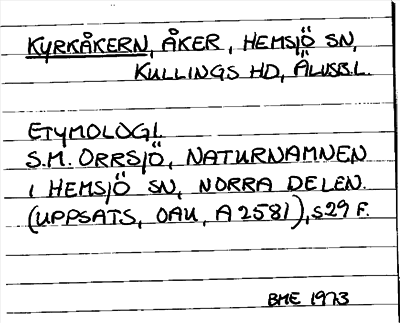 KYRKÅKERN, ÅKER, HEMSJÖ SN,
KULLINGS HD, ÄLVSB.L.
ETYMOLOGI.
S.M. ORRSJÖ, NATURNAMNEN
I HEMSJÖ SN, NORRA DELEN.
(UPPSATS, OAU, A 2581), S29 F.
BME 1973